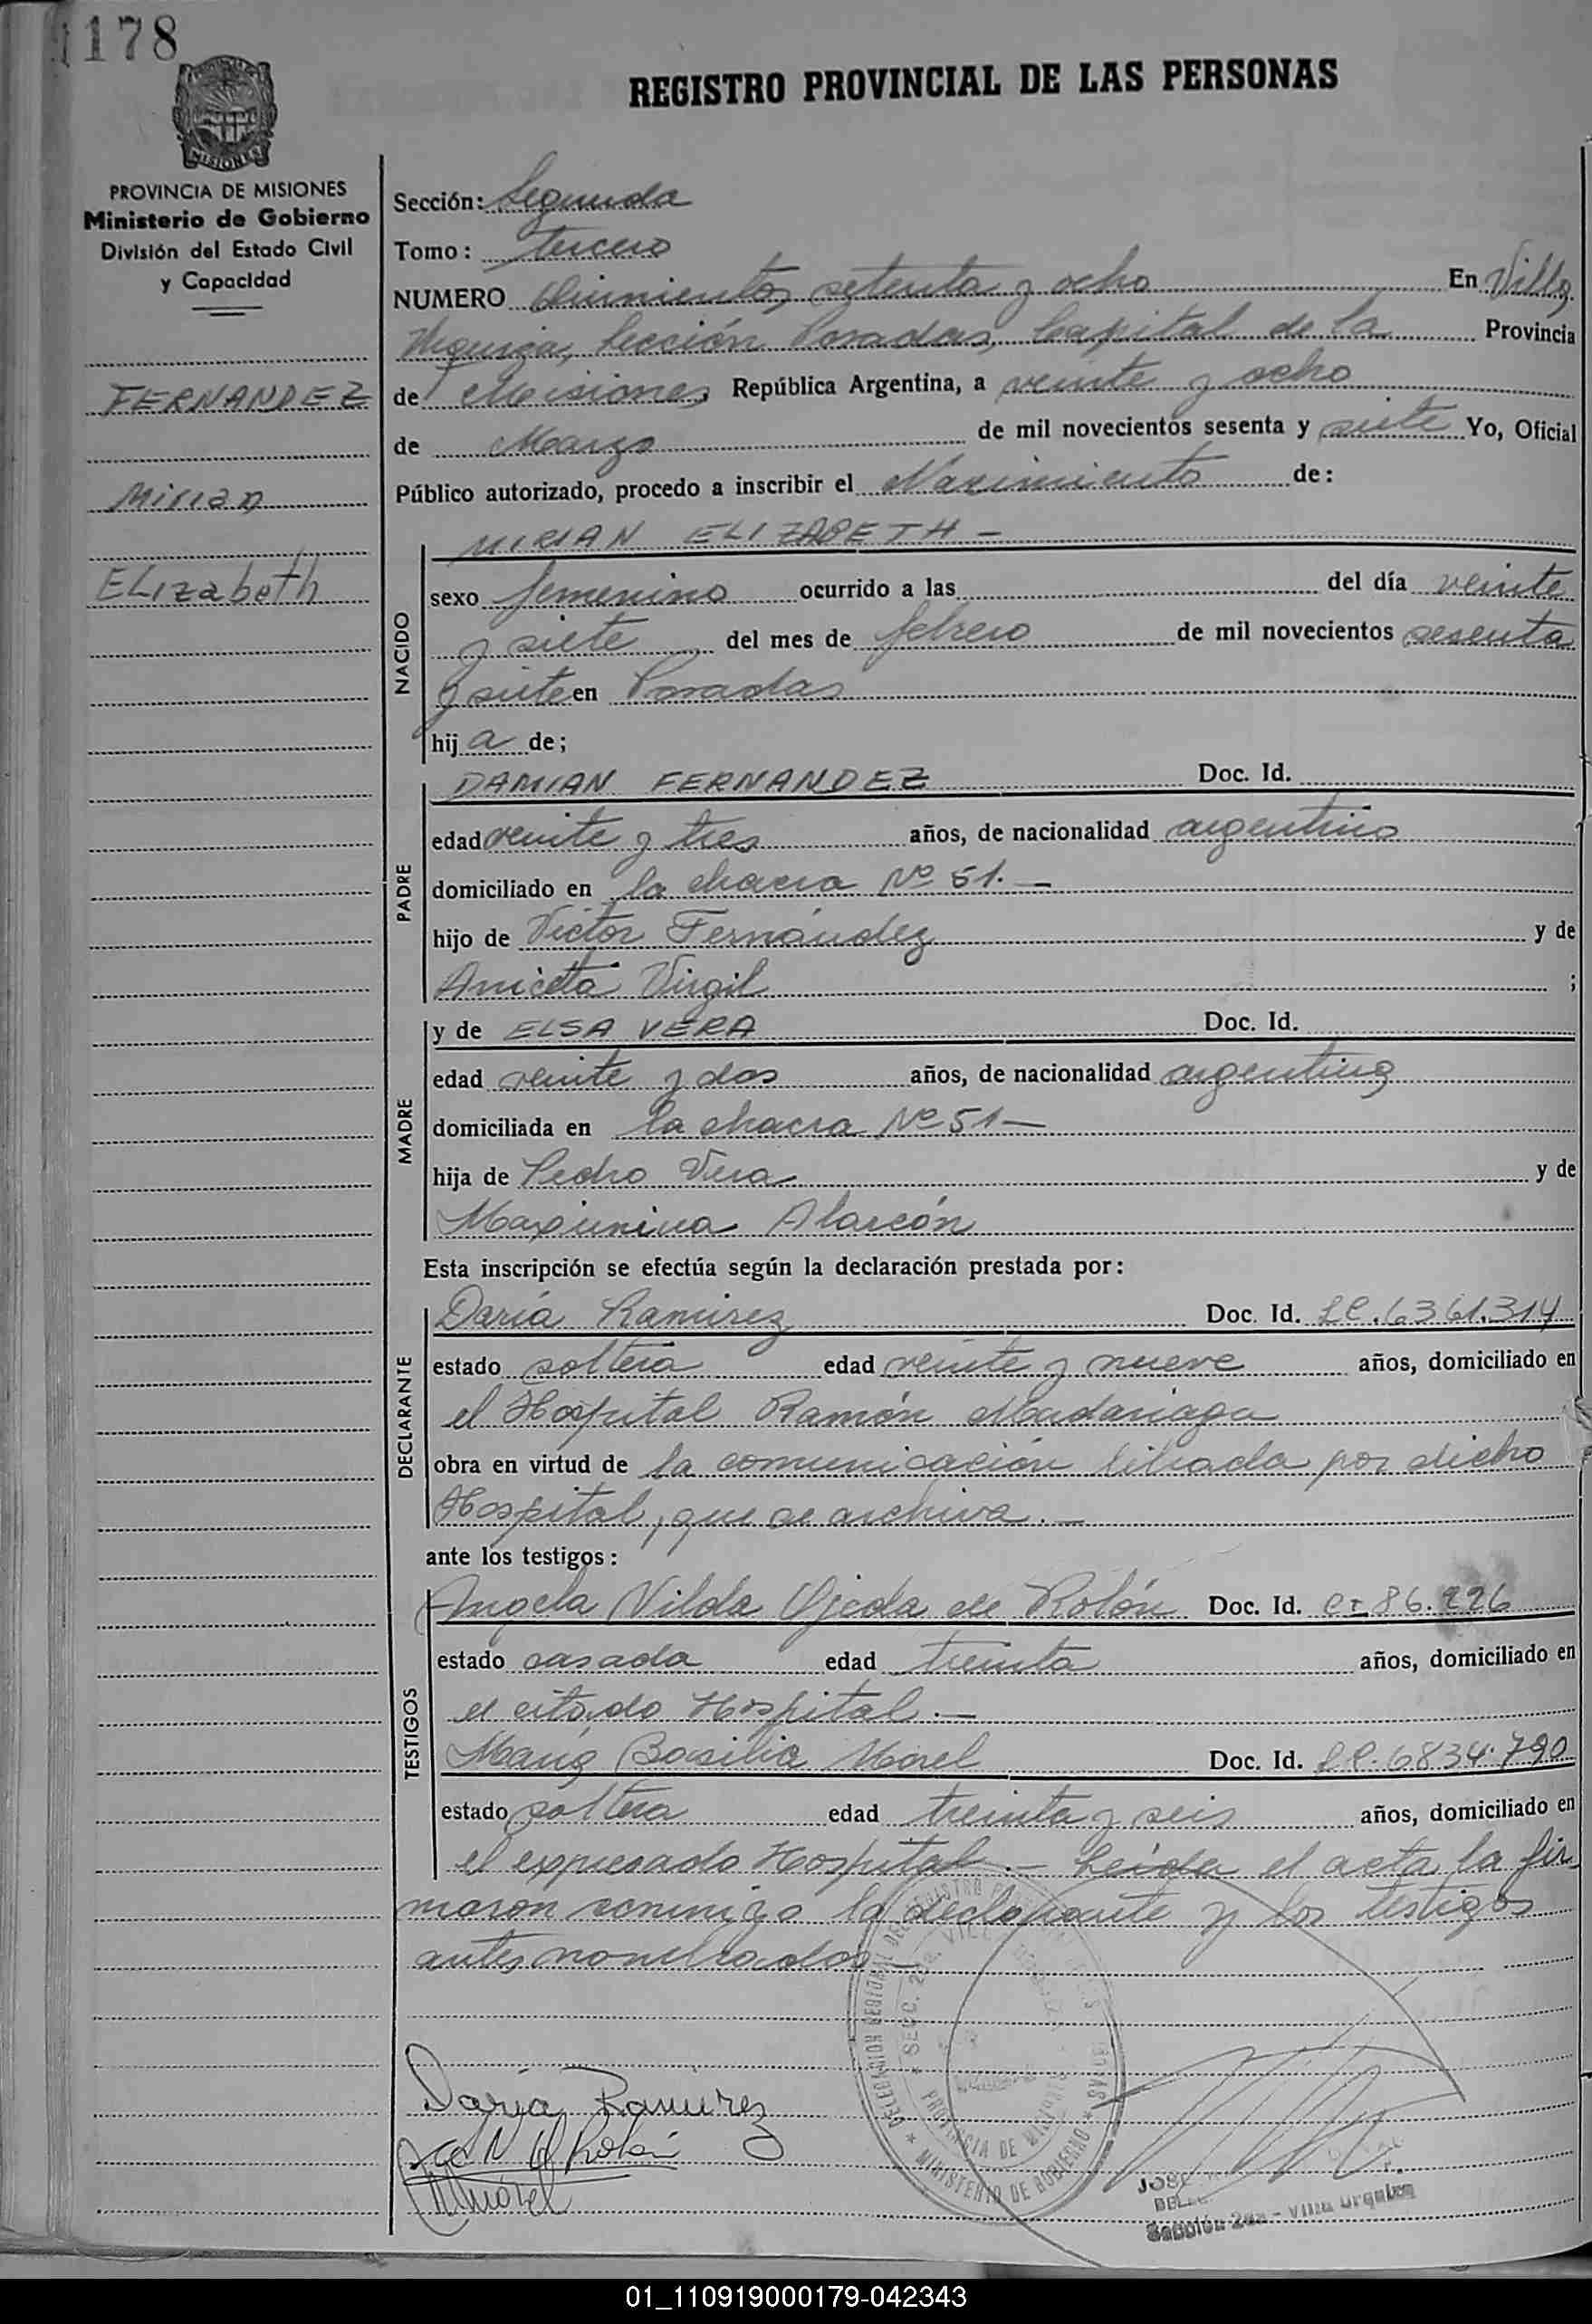 178
REGISTRO PROVINCIAL DE LAS PERSONAS
MISIONES
PROVINCIA DE MISIONES
Ministerio de Gobierno
División del Estado Civil
y Capacidad
FERNANDEZ
Mirian
ELizabeth
Sección: Segunda
Tomo: tercero
NUMERO Quinientos setenta y ocho En Villa
Urquiza, Sección Posadas, Capital de la Provincia
de Misiones, República Argentina, a veinte y ocho
de Marzo de mil novecientos sesenta y siete Yo, Oficial
Público autorizado, procedo a inscribir el Nacimiento de:
MIRIAN ELIZABETH -
NACIDO
sexo femenino ocurrido a las del día veinte
y siete del mes de febrero de mil novecientos sesenta
y siete en Posadas
hij a de;
PADRE
DAMIAN FERNANDEZ Doc. Id.
edad veinte y tres años, de nacionalidad argentino
domiciliado en la chacra Nº 51. —
hijo de Victor Fernández y de
Aniceta Virgil ;
MADRE
y de ELSA VERA Doc. Id.
edad veinte y dos años, de nacionalidad argentina
domiciliada en la chacra Nº 51 —
hija de Pedro Vera y de
Maximina Alarcón
Esta inscripción se efectúa según la declaración prestada por:
DECLARANTE
Daria Ramirez Doc. Id. LC. 6361.314
estado soltera edad veinte y nueve años, domiciliado en
el Hospital Ramón Madariaga
obra en virtud de la comunicación librada por dicho
Hospital, que se archiva. —
ante los testigos:
TESTIGOS
Angela Nilda Ojeda de Rolón Doc. Id. CI 86.226
estado casada edad treinta años, domiciliado en
el citado Hospital. —
María Basilia Morel Doc. Id. LC. 6834.790
estado soltera edad treinta y seis años, domiciliado en
el expresado Hospital. — Leída el acta, la fir
maron conmigo la declarante y los testigos
antes nombrados
Daria Ramirez
Rolón
Morel
DELEGACION REGIONAL DEL REGISTRO
SECC. 2da. VILLA
PROVINCIA DE MISIONES
MINISTERIO DE GOBIERNO
JOSE
Sección 2da - Villa Urquiza
01_110919000179-042343